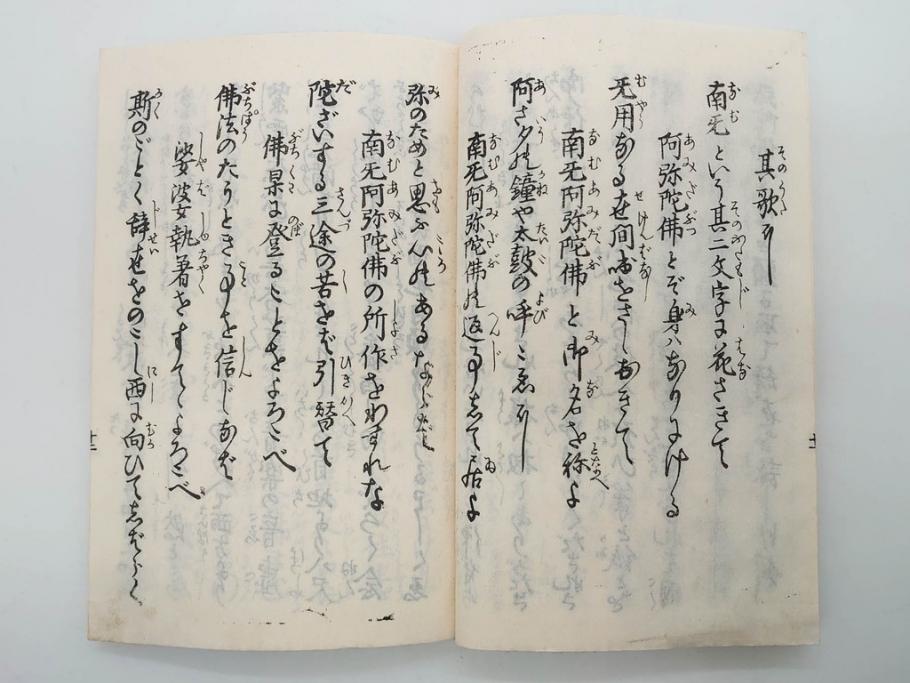 其歌に
南无という其二文字に花さきて
阿弥陀佛とぞ身ハなりにける
无用なる世間咄をさしおきて
南无阿弥陀佛と御名を称よ
阿さ夕の鐘や太鼓の呼こゑに
南无阿弥陀佛の返事して居よ
弥のためと思ふ心のあるならば
南无阿弥陀佛の所作をわすれな
陀ざいする三途の苦をば引替て
佛果に登ることをよろこべ
佛法のたうとき事を信じなば
娑婆執着をすてゝよろこべ
斯のごとく辞世をのこし西に向ひてしばらく
十二